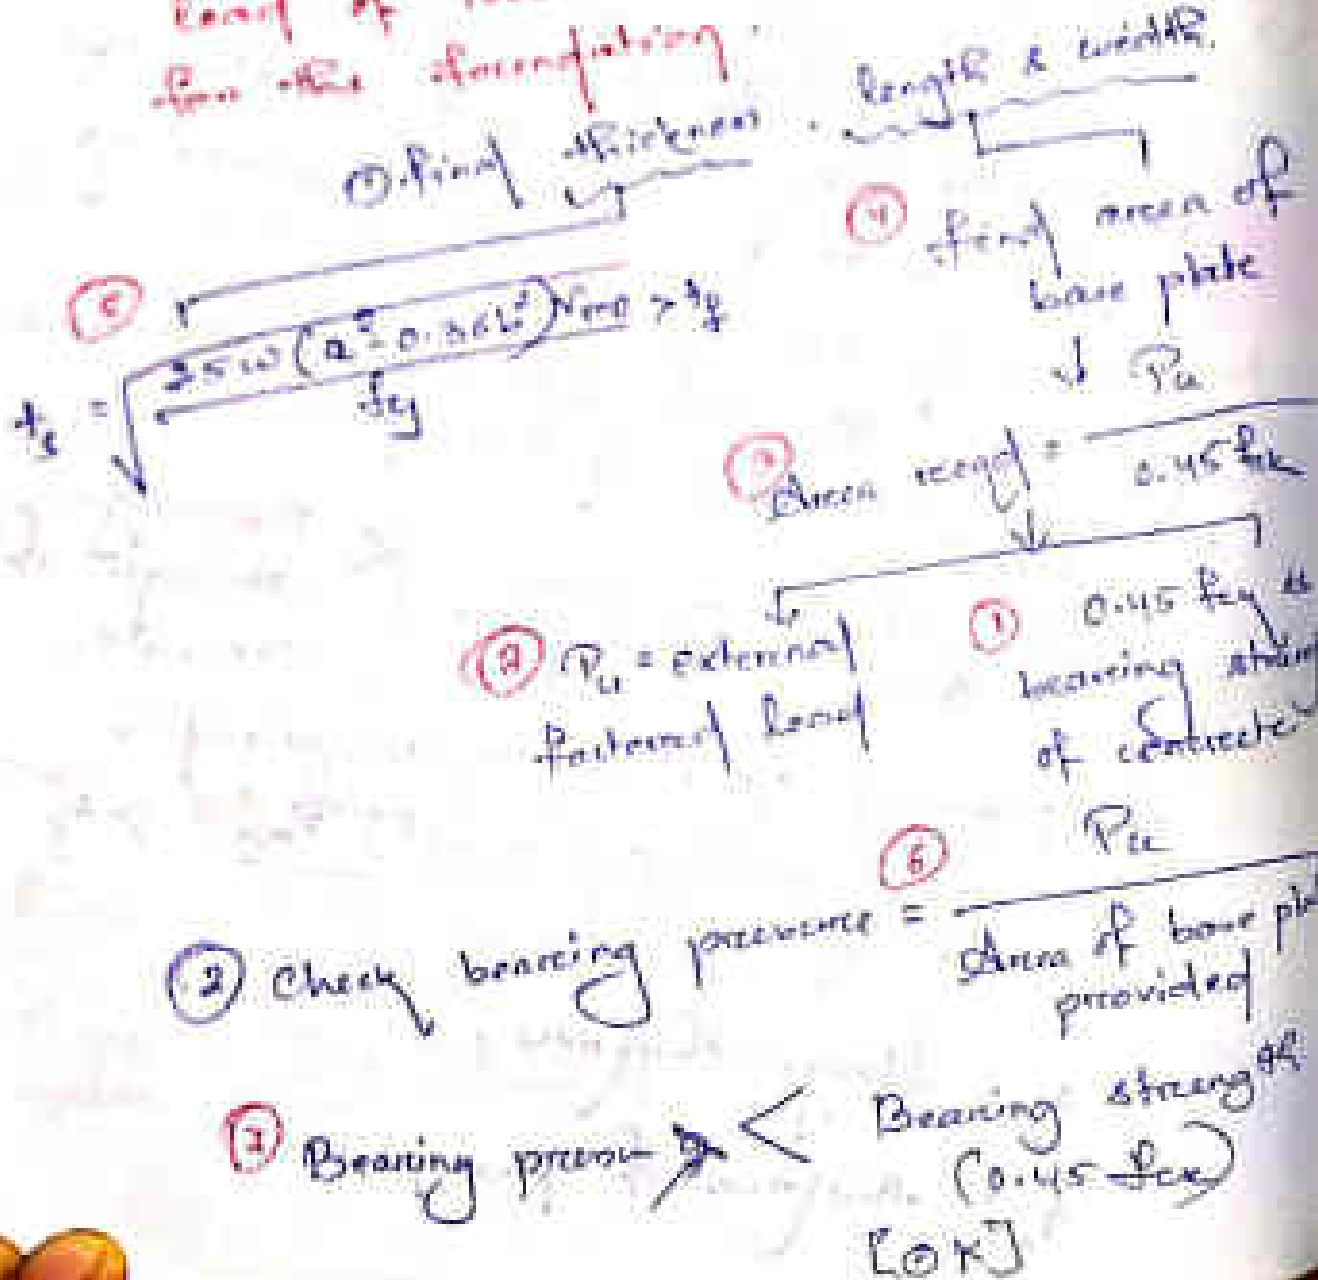 load of
for the foundation.
① find thickness, length & width.
④ find area of
base plate
⑤ ts = √ 2.5 w (a² - 0.3 b²) γmo > tf
fy
Pu
③ Area reqd = 0.45 fck
② Pu = external
factored load
① 0.45 fcy is
bearing
of concrete
⑥ Pu
② Check bearing pressure =
Area of base
provided
⑦ Bearing pressure < Bearing strength
(0.45 fck)
[OK]